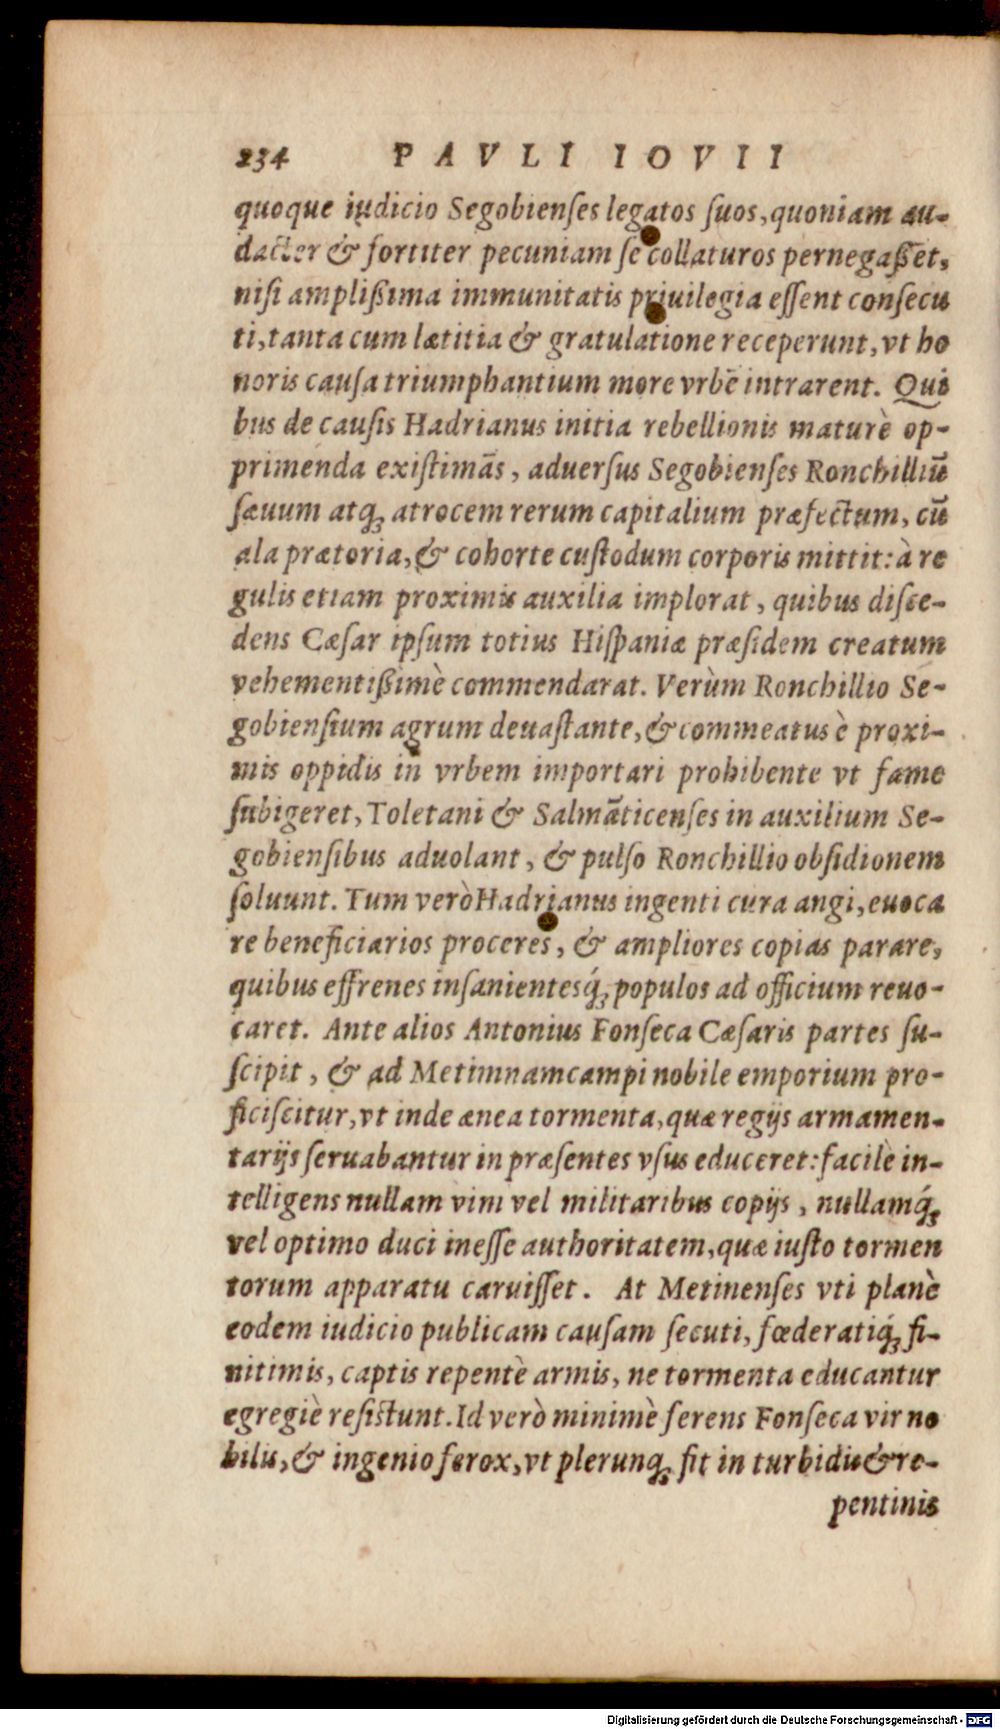 234 PAVLI IOVII
quoque iudicio Segobienſes legatos ſuos, quoniam au-
dacter & fortiter pecuniam ſe collaturos pernegaßēt,
niſi amplißima immunitatis priuilegia eſſent conſecu
ti, tanta cum lætitia & gratulatione receperunt, vt ho
noris cauſa triumphantium more vrbē intrarent. Qui
bus de cauſis Hadrianus initia rebellionis maturè op-
primenda exiſtimãs, aduerſus Segobienſes Ronchilliũ
ſæuum atq; atrocem rerum capitalium præfectum, cũ
ala prætoria, & cohorte cuſtodum corporis mittit: à re
gulis etiam proximis auxilia implorat, quibus diſce-
dens Cæſar ipſum totius Hiſpaniæ præſidem creatum
vehementißimè commendarat. Verùm Ronchillio Se-
gobienſium agrum deuaſtante, & commeatus è proxi-
mis oppidis in vrbem importari prohibente vt fame
ſubigeret, Toletani & Salmãticenſes in auxilium Se-
gobienſibus aduolant, & pulſo Ronchillio obſidionem
ſoluunt. Tum verò Hadrianus ingenti cura angi, euoca
re beneficiarios proceres, & ampliores copias parare,
quibus effrenes inſanientesq́; populos ad officium reuo-
caret. Ante alios Antonius Fonſeca Cæſaris partes ſu-
ſcipit, & ad Metimnamcampi nobile emporium pro-
ficiſcitur, vt inde ænea tormenta, quæ regijs armamen-
tarijs ſeruabantur in præſentes vſus educeret: facilè in-
telligens nullam vim vel militaribus copijs, nullamq́;
vel optimo duci ineſſe authoritatem, quæ iuſto tormen
torum apparatu caruiſſet. At Metinenſes vti planè
eodem iudicio publicam cauſam ſecuti, fœderatiq́; fi-
nitimis, captis repentè armis, ne tormenta educantur
egregiè reſiſtunt. Id verò minimè ferens Fonſeca vir no
bilis, & ingenio ferox, vt plerunq; fit in turbidis & re-
pentinis
Digitalisierung gefördert durch die Deutsche Forschungsgemeinschaft - DFG